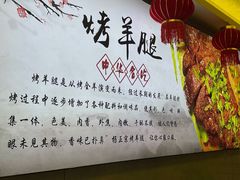 烤羊腿
中华名吃
烤羊腿是从烤全羊演变而来，经过长期的实
烤过程中逐步增加了各种配料和调味品
集一体，色美、肉香、外焦、肉嫩、
眼未见其物，香味已扑鼻"